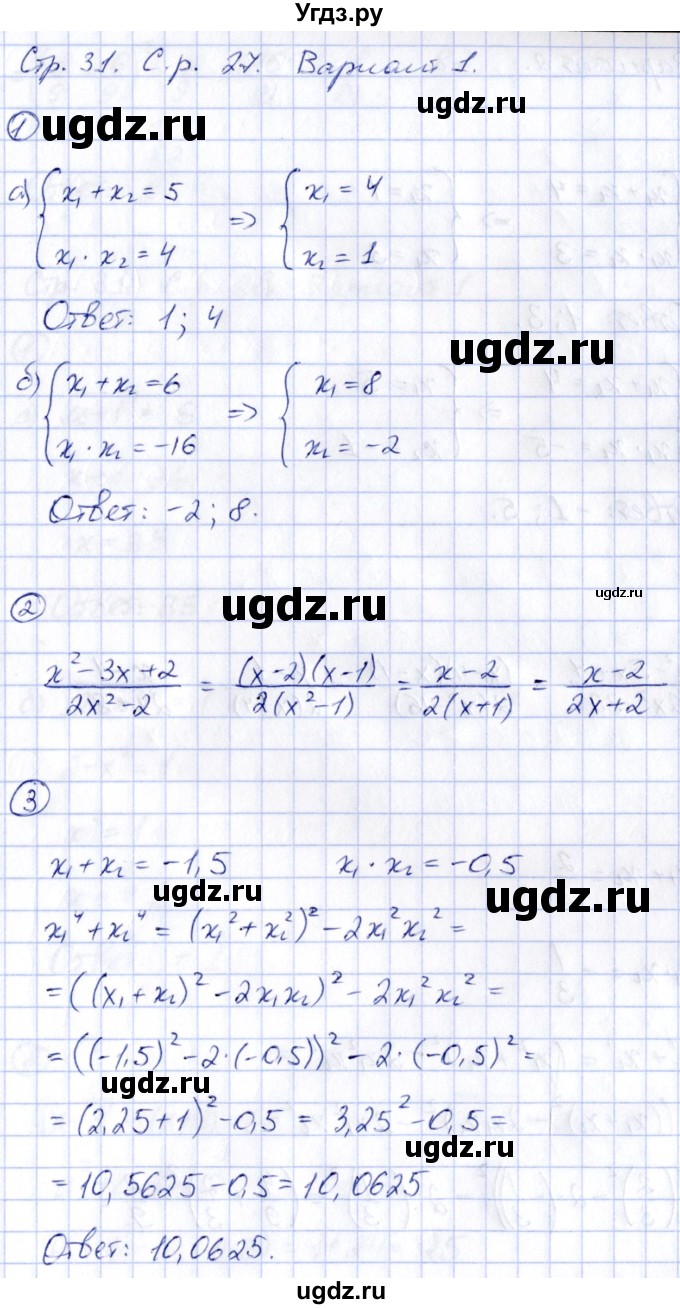 Угдз.ру
Стр. 31. С.р. 27. Вариант 1.
ugdz.ru
① ugdz.ru
а) { x₁ + x₂ = 5 ⇒ { x₁ = 4
x₁ · x₂ = 4 x₂ = 1
Ответ: 1; 4
ugdz.ru
б) { x₁ + x₂ = 6 ⇒ { x₁ = 8
x₁ · x₂ = -16 x₂ = -2
Ответ: -2; 8.
② ugdz.ru ugdz.ru
(x² - 3x + 2)/(2x² - 2) = ((x-2)(x-1))/(2(x²-1)) = (x-2)/(2(x+1)) = (x-2)/(2x+2)
③
x₁ + x₂ = -1,5 x₁ · x₂ = -0,5
ugdz.ru ugdz.ru
x₁⁴ + x₂⁴ = (x₁² + x₂²)² - 2x₁²x₂² =
= ((x₁ + x₂)² - 2x₁x₂)² - 2x₁²x₂² =
= ((-1,5)² - 2·(-0,5))² - 2·(-0,5)² =
ugdz.ru
= (2,25+1)² - 0,5 = 3,25² - 0,5 =
ugdz.ru
= 10,5625 - 0,5 = 10,0625
Ответ: 10,0625.
ugdz.ru